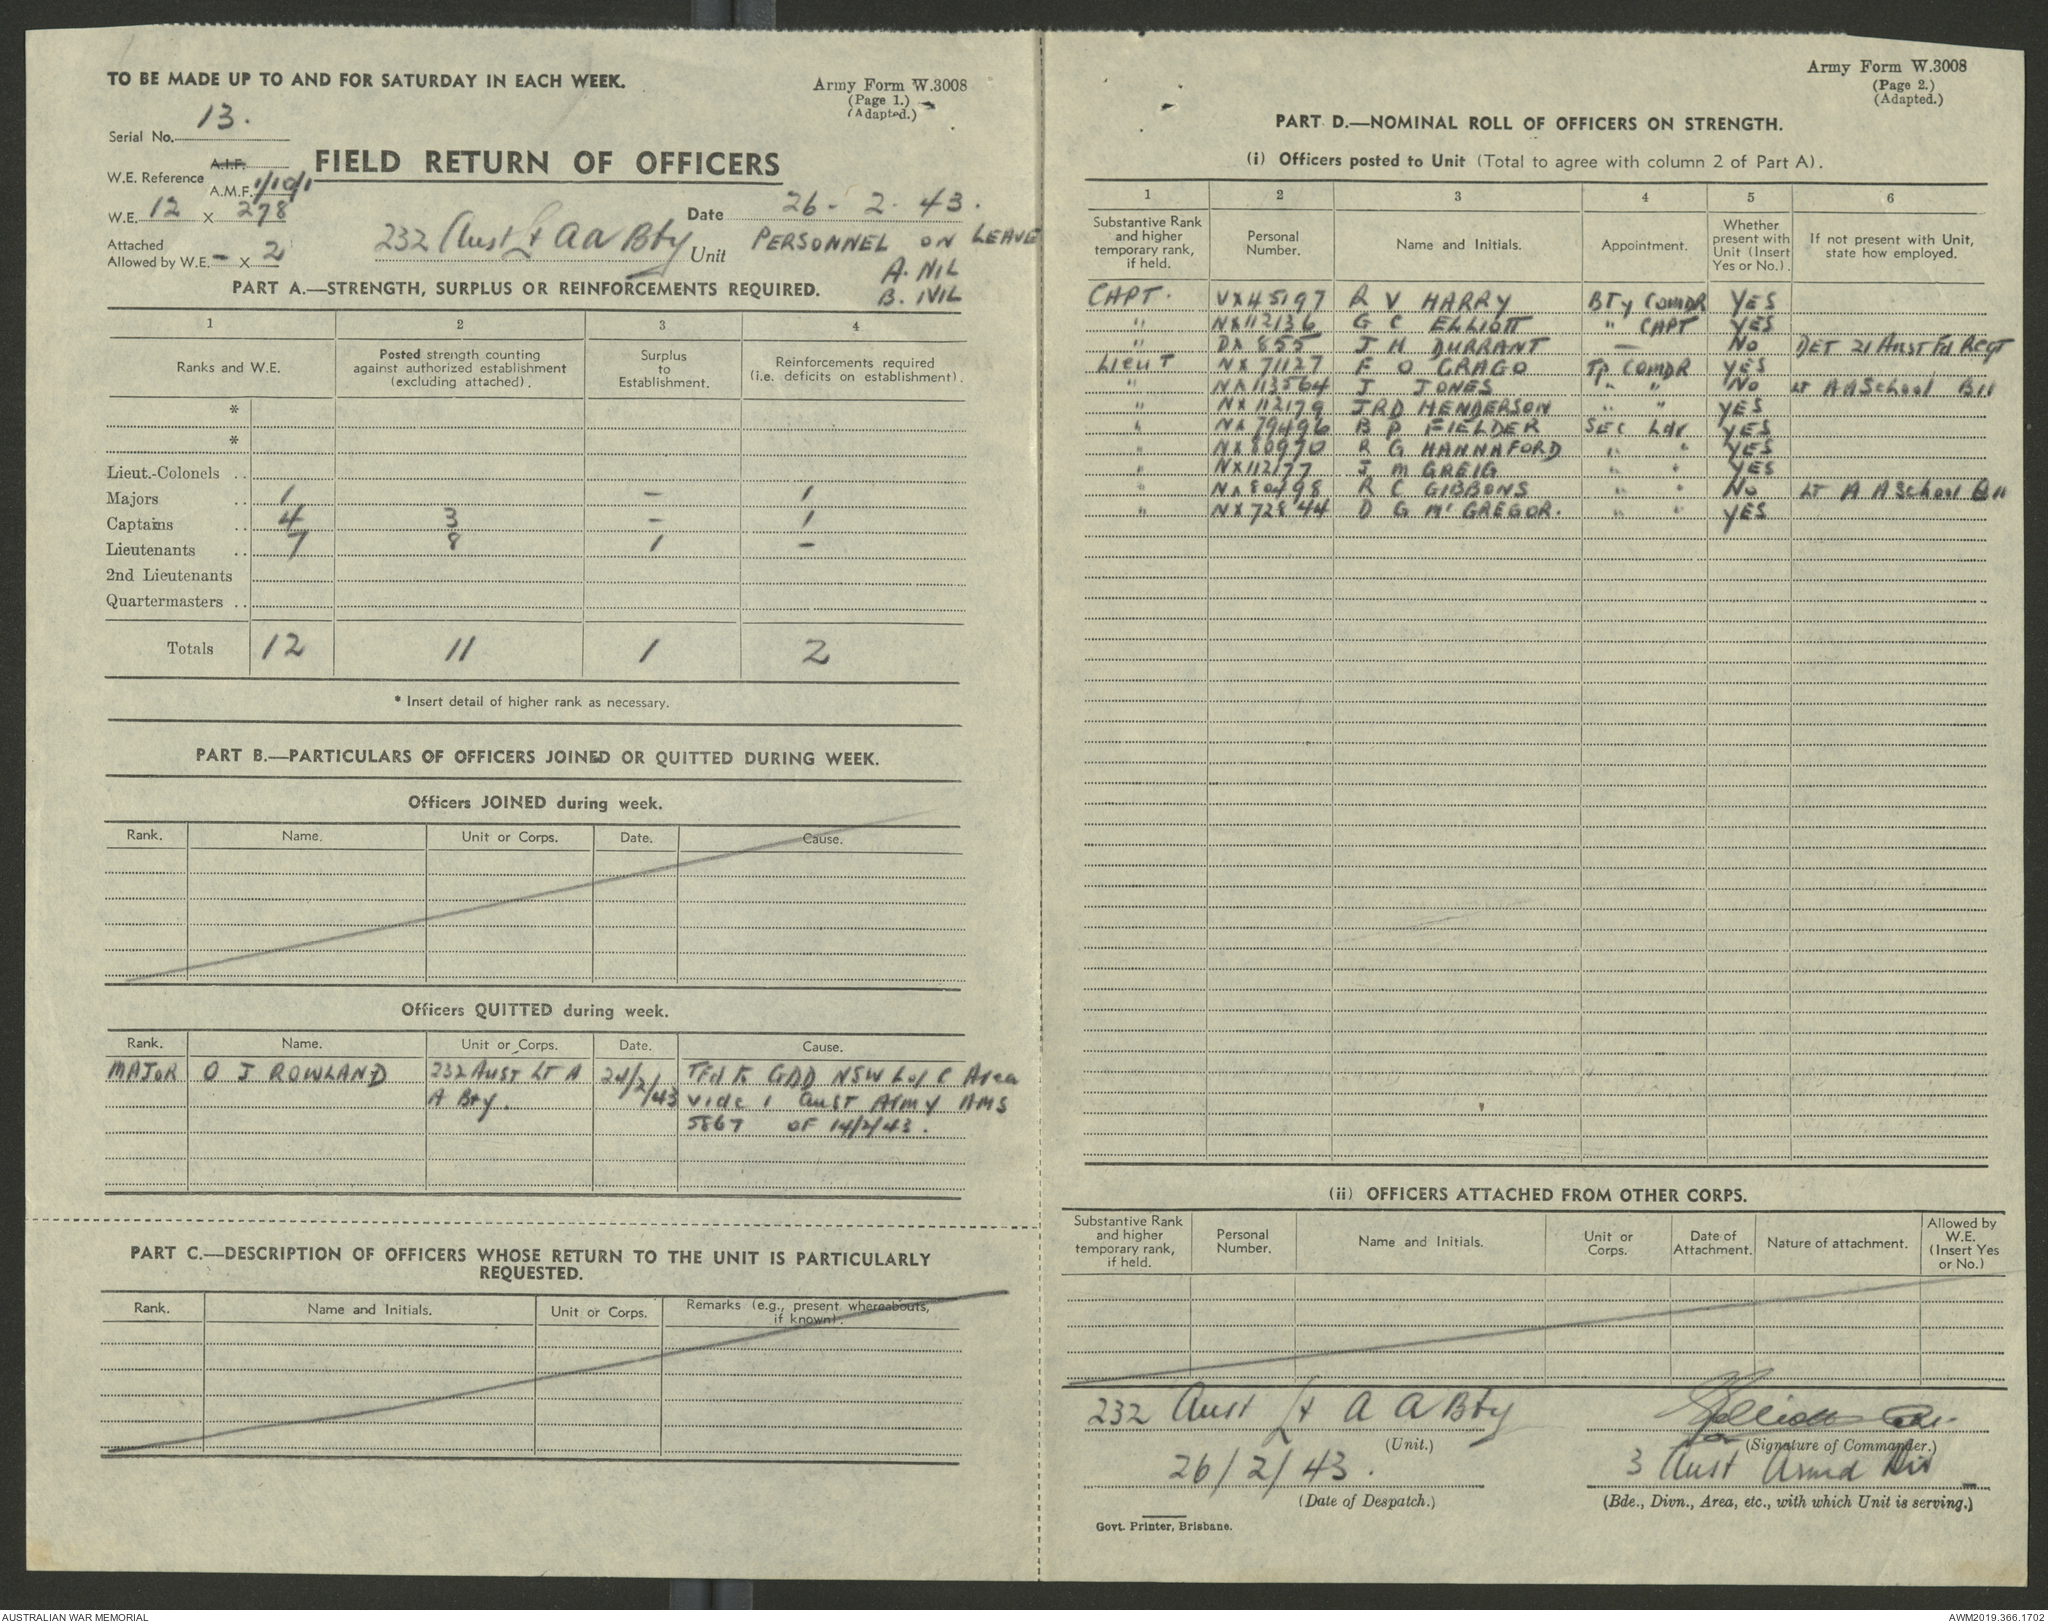 TO BE MADE UP TO AND FOR SATURDAY IN EACH WEEK.
Army Form W.3008
(Page 1.)
(Adapted.)
Serial No. 13.
W.E. Reference A.I.F.
A.M.F. 1/10/1
FIELD RETURN OF OFFICERS
W.E. 12 X 278
Date 26 - 2. 43.
Attached
Allowed by W.E. - X 2
232 Aust Lt AA Bty Unit
PERSONNEL ON LEAVE
A. NIL
B. NIL
PART A.—STRENGTH, SURPLUS OR REINFORCEMENTS REQUIRED.
1 2 3 4
Ranks and W.E. Posted strength counting against authorized establishment (excluding attached). Surplus to Establishment. Reinforcements required (i.e. deficits on establishment).
*
*
Lieut.-Colonels ..
Majors 1 – 1
Captains .. 4 3 – 1
Lieutenants .. 7 8 1 –
2nd Lieutenants
Quartermasters ..
Totals 12 11 1 2
* Insert detail of higher rank as necessary.
PART B.—PARTICULARS OF OFFICERS JOINED OR QUITTED DURING WEEK.
Officers JOINED during week.
Rank. Name. Unit or Corps. Date. Cause.
Officers QUITTED during week.
Rank. Name. Unit or Corps. Date. Cause.
MAJOR O J ROWLAND 232 AUST LT A 24/2/43 Tfd to GDD NSW L of C Area
A Bty. vide 1 Aust Army AMS
5867 OF 14/2/43.
PART C.—DESCRIPTION OF OFFICERS WHOSE RETURN TO THE UNIT IS PARTICULARLY
REQUESTED.
Rank. Name and Initials. Unit or Corps. Remarks (e.g., present whereabouts, if known).
Army Form W.3008
(Page 2.)
(Adapted.)
PART D.—NOMINAL ROLL OF OFFICERS ON STRENGTH.
(i) Officers posted to Unit (Total to agree with column 2 of Part A).
1 2 3 4 5 6
Substantive Rank and higher temporary rank, if held. Personal Number. Name and Initials. Appointment. Whether present with Unit (Insert Yes or No). If not present with Unit, state how employed.
CAPT. VX45197 R V HARRY BTy COMDR YES
" NX112136 G C ELLIOTT " CAPT YES
" DX 855 J H DURRANT — No DET 21 Aust Fd Regt
LIEUT NX 71127 F O GRAGO Tp COMDR YES
" NX113564 J JONES " " No LT A A School
" NX 112179 JRD HENDERSON " " YES
" NX 79496 B P FIELDER SEC Ldr YES
" NX80970 R G HANNAFORD " " YES
" NX112177 J M GREIG " " YES
" NX80498 R C GIBBONS " " No LT A A School
" NX72844 D G McGREGOR. " " YES
(ii) OFFICERS ATTACHED FROM OTHER CORPS.
Substantive Rank and higher temporary rank, if held. Personal Number. Name and Initials. Unit or Corps. Date of Attachment. Nature of attachment. Allowed by W.E. (Insert Yes or No.)
232 Aust Lt A A Bty
(Unit.)
Elliott Capt
(Signature of Commander.)
26/2/43.
(Date of Despatch.)
3 Aust Armd Div
(Bde., Divn., Area, etc., with which Unit is serving.)
Govt. Printer, Brisbane.
AUSTRALIAN WAR MEMORIAL
AWM2019.366.1702